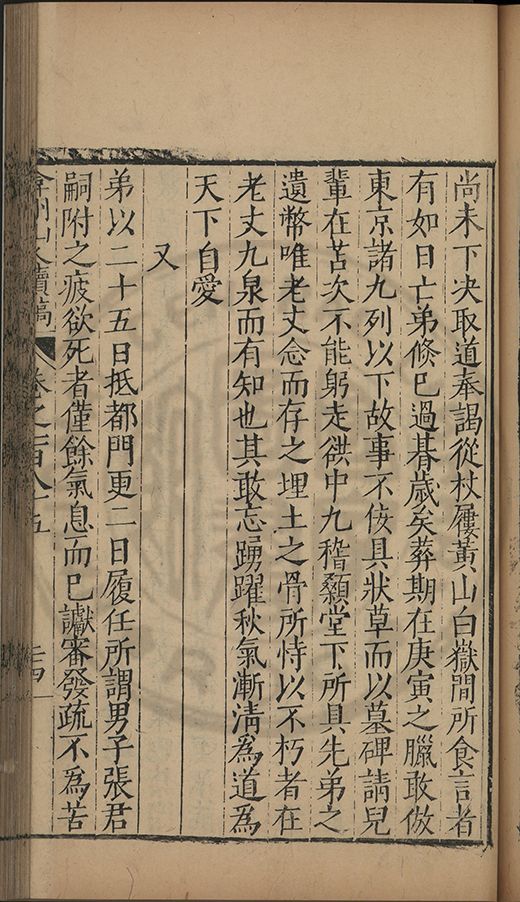 尚未下决取道奉謁從杖屨黃山白嶽間所食言者
有如日亡弟倐已過朞歲矣葬期在庚寅之臘敢倣
東京諸九列以下故事不侫具狀草而以墓碑請兒
輩在苫次不能躬走䜤中九稽顙堂下所具先弟之
遺幣唯老丈念而存之埋土之骨所恃以不朽者在
老丈九泉而有知也其敢忘踴躍秋氣漸淸為道為
天下自愛
又
弟以二十五日抵都門更二日履任所謂男子張君
嗣附之疲欲死者僅餘氣息而已讞審發疏不為苦
弇州山人續稿 卷之一百八十五 二十四